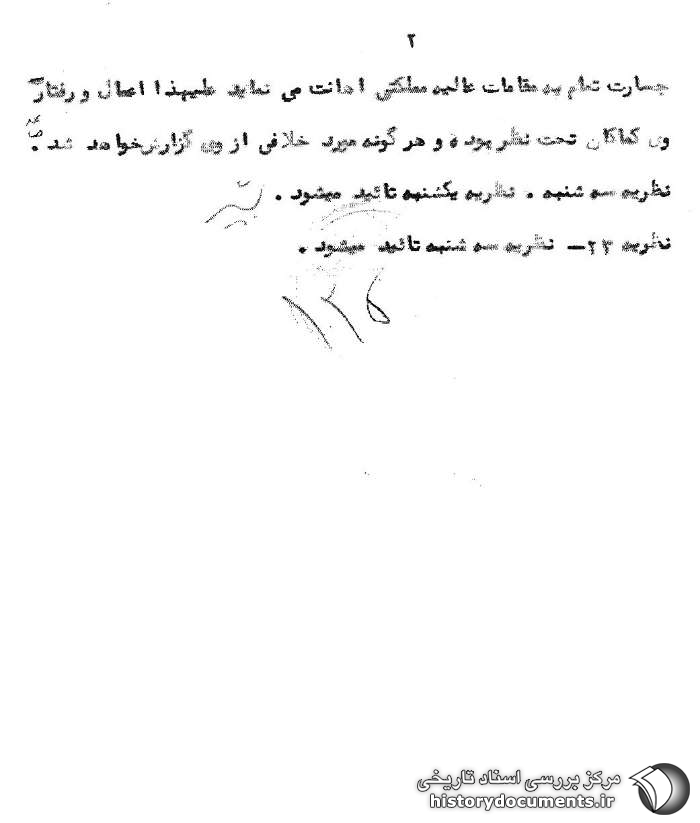 ۲
جسارت تمام به مقامات عالیه مملکتی اهانت می نماید علیهذا اعمال و رفتار
وی کماکان تحت نظر بوده و هر گونه مورد خلافی از وی گزارش خواهد شد .
نظریه سه شنبه . نظریه یکشنبه تائید میشود .
نظریه ۲۳ـ نظریه سه شنبه تائید میشود .
مرکز بررسی اسناد تاریخی
historydocuments.ir